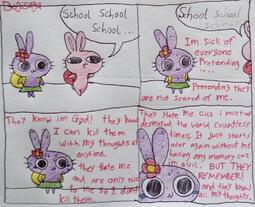 School School
School...
School School
School...
Im sick of
everyone
Pretending
....
Pretending they
are not scared of me.
They know im God! they know
I can kill them
with my thoughts at
anytime.
they Hate me
and are only nice
to me so I dont
kill them.
They Hate Me cus i must
destroyed the world countless
times, It just starts
over again without me
having any memory cuz
im evil. BUT THEY
REMEMBER!
and they know
all my thoughts.